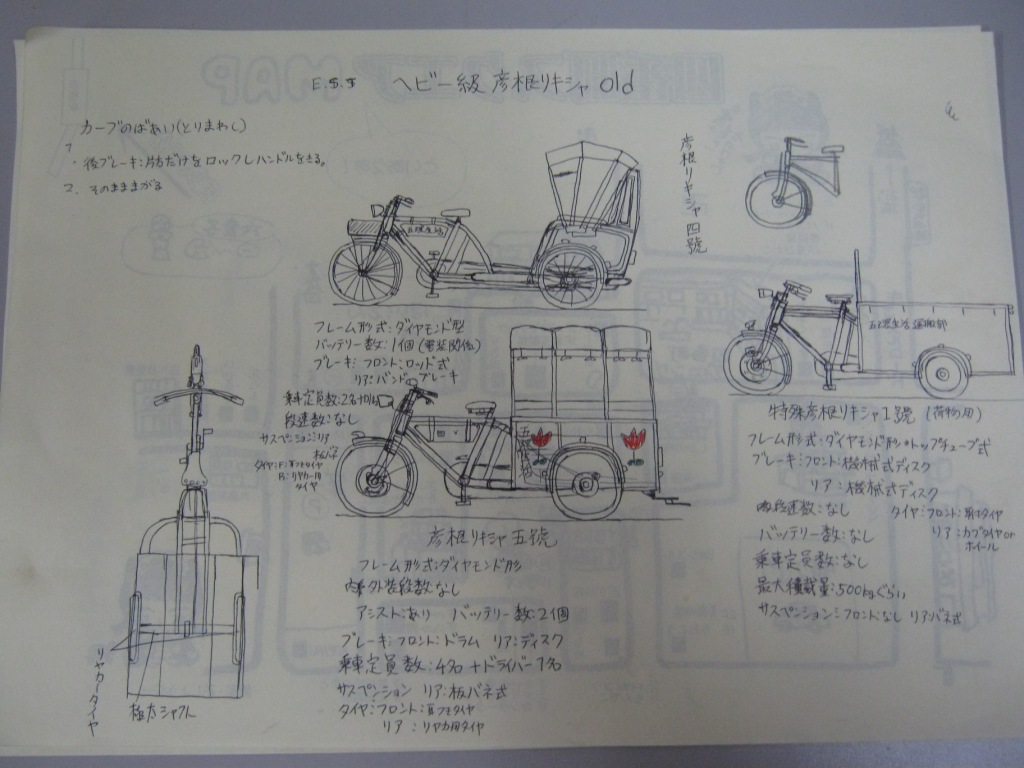 E.S.S ヘビー級 彦根リキシャ old
カーブのばあい(とりまわし)
1
・後ブレーキ:片方だけをロックしハンドルをきる。
2. そのまままがる
彦根リキシャ四號
五環生活
フレーム形式:ダイヤモンド型
バッテリー数:1個(電装関係)
ブレーキ:フロント:ロッド式
リア:バンドブレーキ
乗車定員数:2名
段速数:なし
サスペンション:リア
板バネ
タイヤ:F:耳つきタイヤ
R:リヤカー用
タイヤ
五環生活
彦根リキシャ五號
フレーム形式:ダイヤモンド形
内外装段数なし
アシスト:あり バッテリー数:2個
ブレーキ:フロント:ドラム リア:ディスク
乗車定員数:4名+ドライバー1名
サスペンション リア:板バネ式
タイヤ:フロント:耳つきタイヤ
リア:リヤカ用タイヤ
五環生活 運搬部
特殊彦根リキシャ1號(荷物用)
フレーム形式:ダイヤモンド形・トップチューブ式
ブレーキ:フロント:機械式ディスク
リア:機械式ディスク
段速数:なし タイヤ:フロント:耳付タイヤ
リア:カブタイヤor
ホイール
バッテリー数:なし
乗車定員数:なし
最大積載量:500kgぐらい
サスペンション:フロントなし リア:バネ式
リヤカータイヤ
シャフト